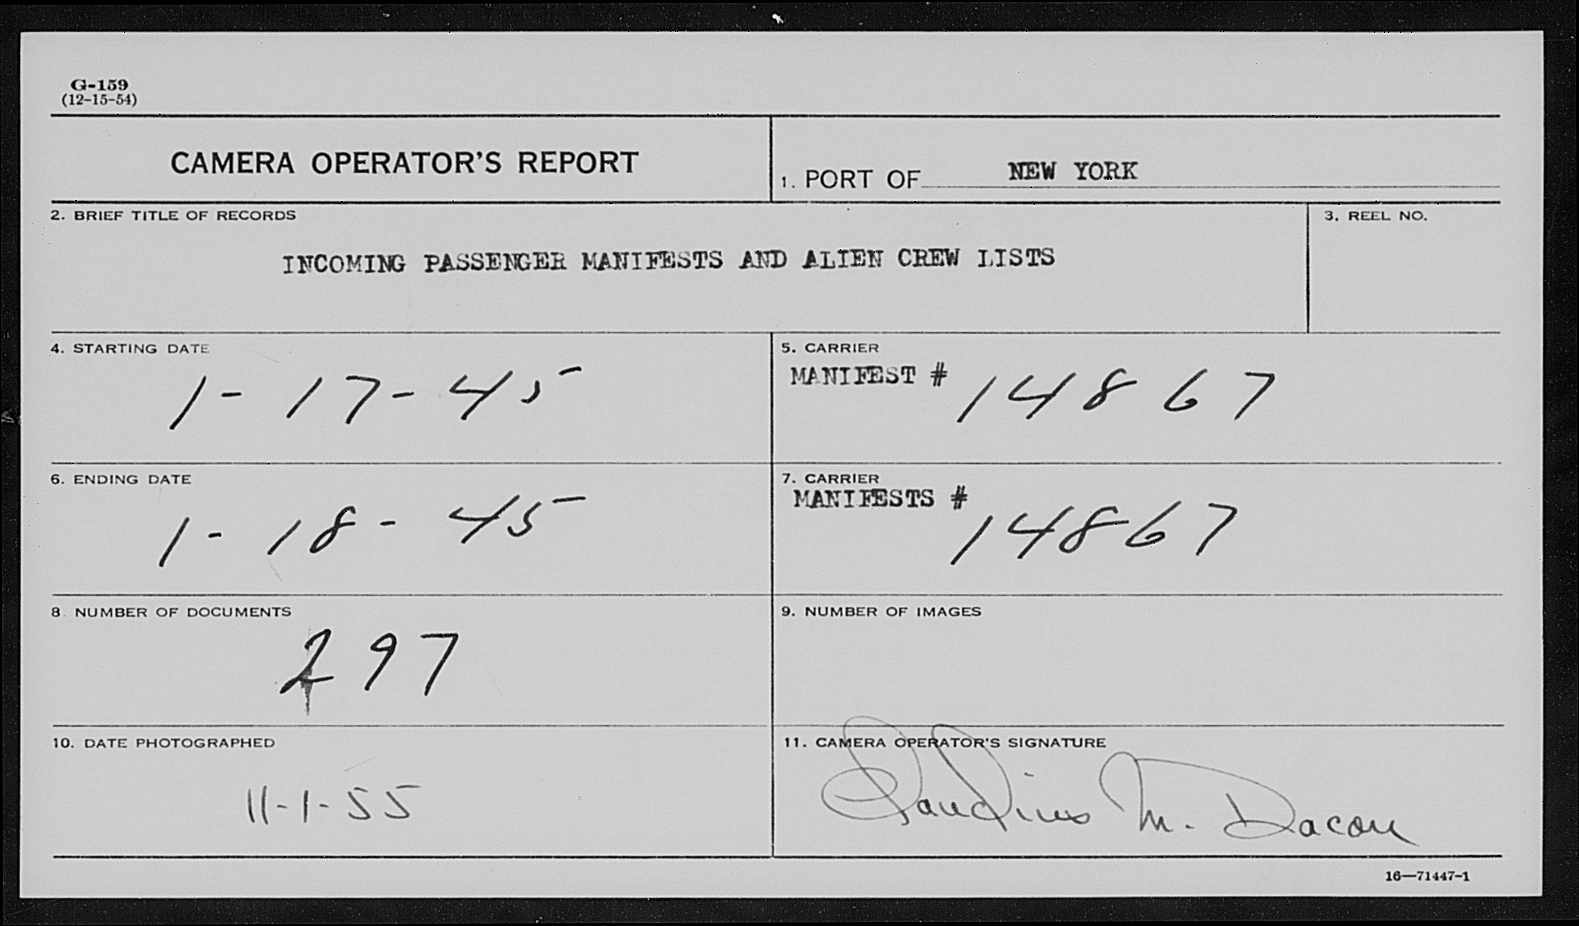 G-159
(12-15-54)
CAMERA OPERATOR'S REPORT
1. PORT OF NEW YORK
2. BRIEF TITLE OF RECORDS
INCOMING PASSENGER MANIFESTS AND ALIEN CREW LISTS
3. REEL NO.
4. STARTING DATE
1-17-45
5. CARRIER
MANIFEST # 14867
6. ENDING DATE
1-18-45
7. CARRIER
MANIFESTS # 14867
8. NUMBER OF DOCUMENTS
297
9. NUMBER OF IMAGES
10. DATE PHOTOGRAPHED
11-1-55
11. CAMERA OPERATOR'S SIGNATURE
Claudius M. Dacon
16—71447-1